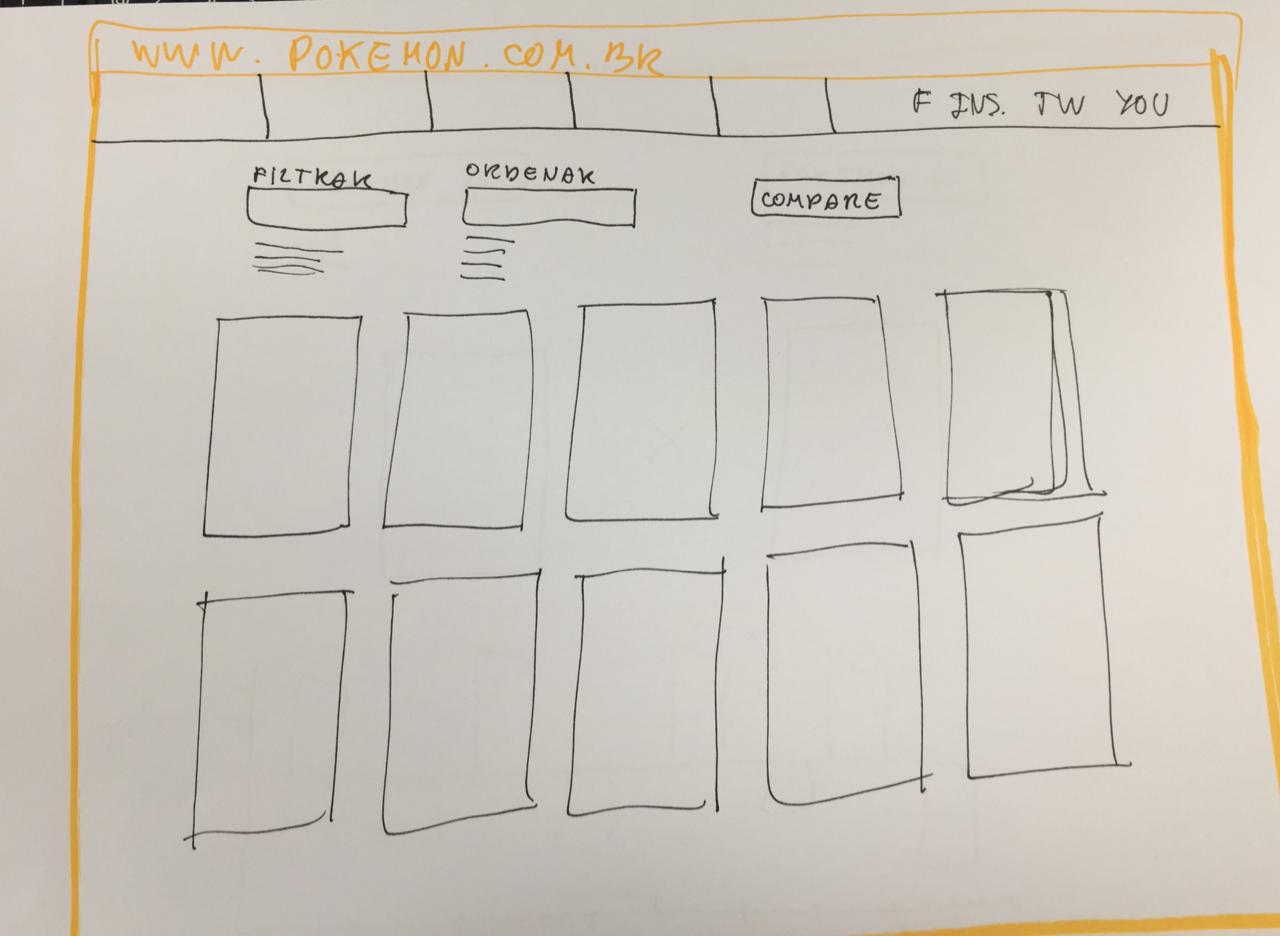 WWW.POKEMON.COM.BR
F INS. TW YOU
FILTRAR ORDENAR
COMPARE